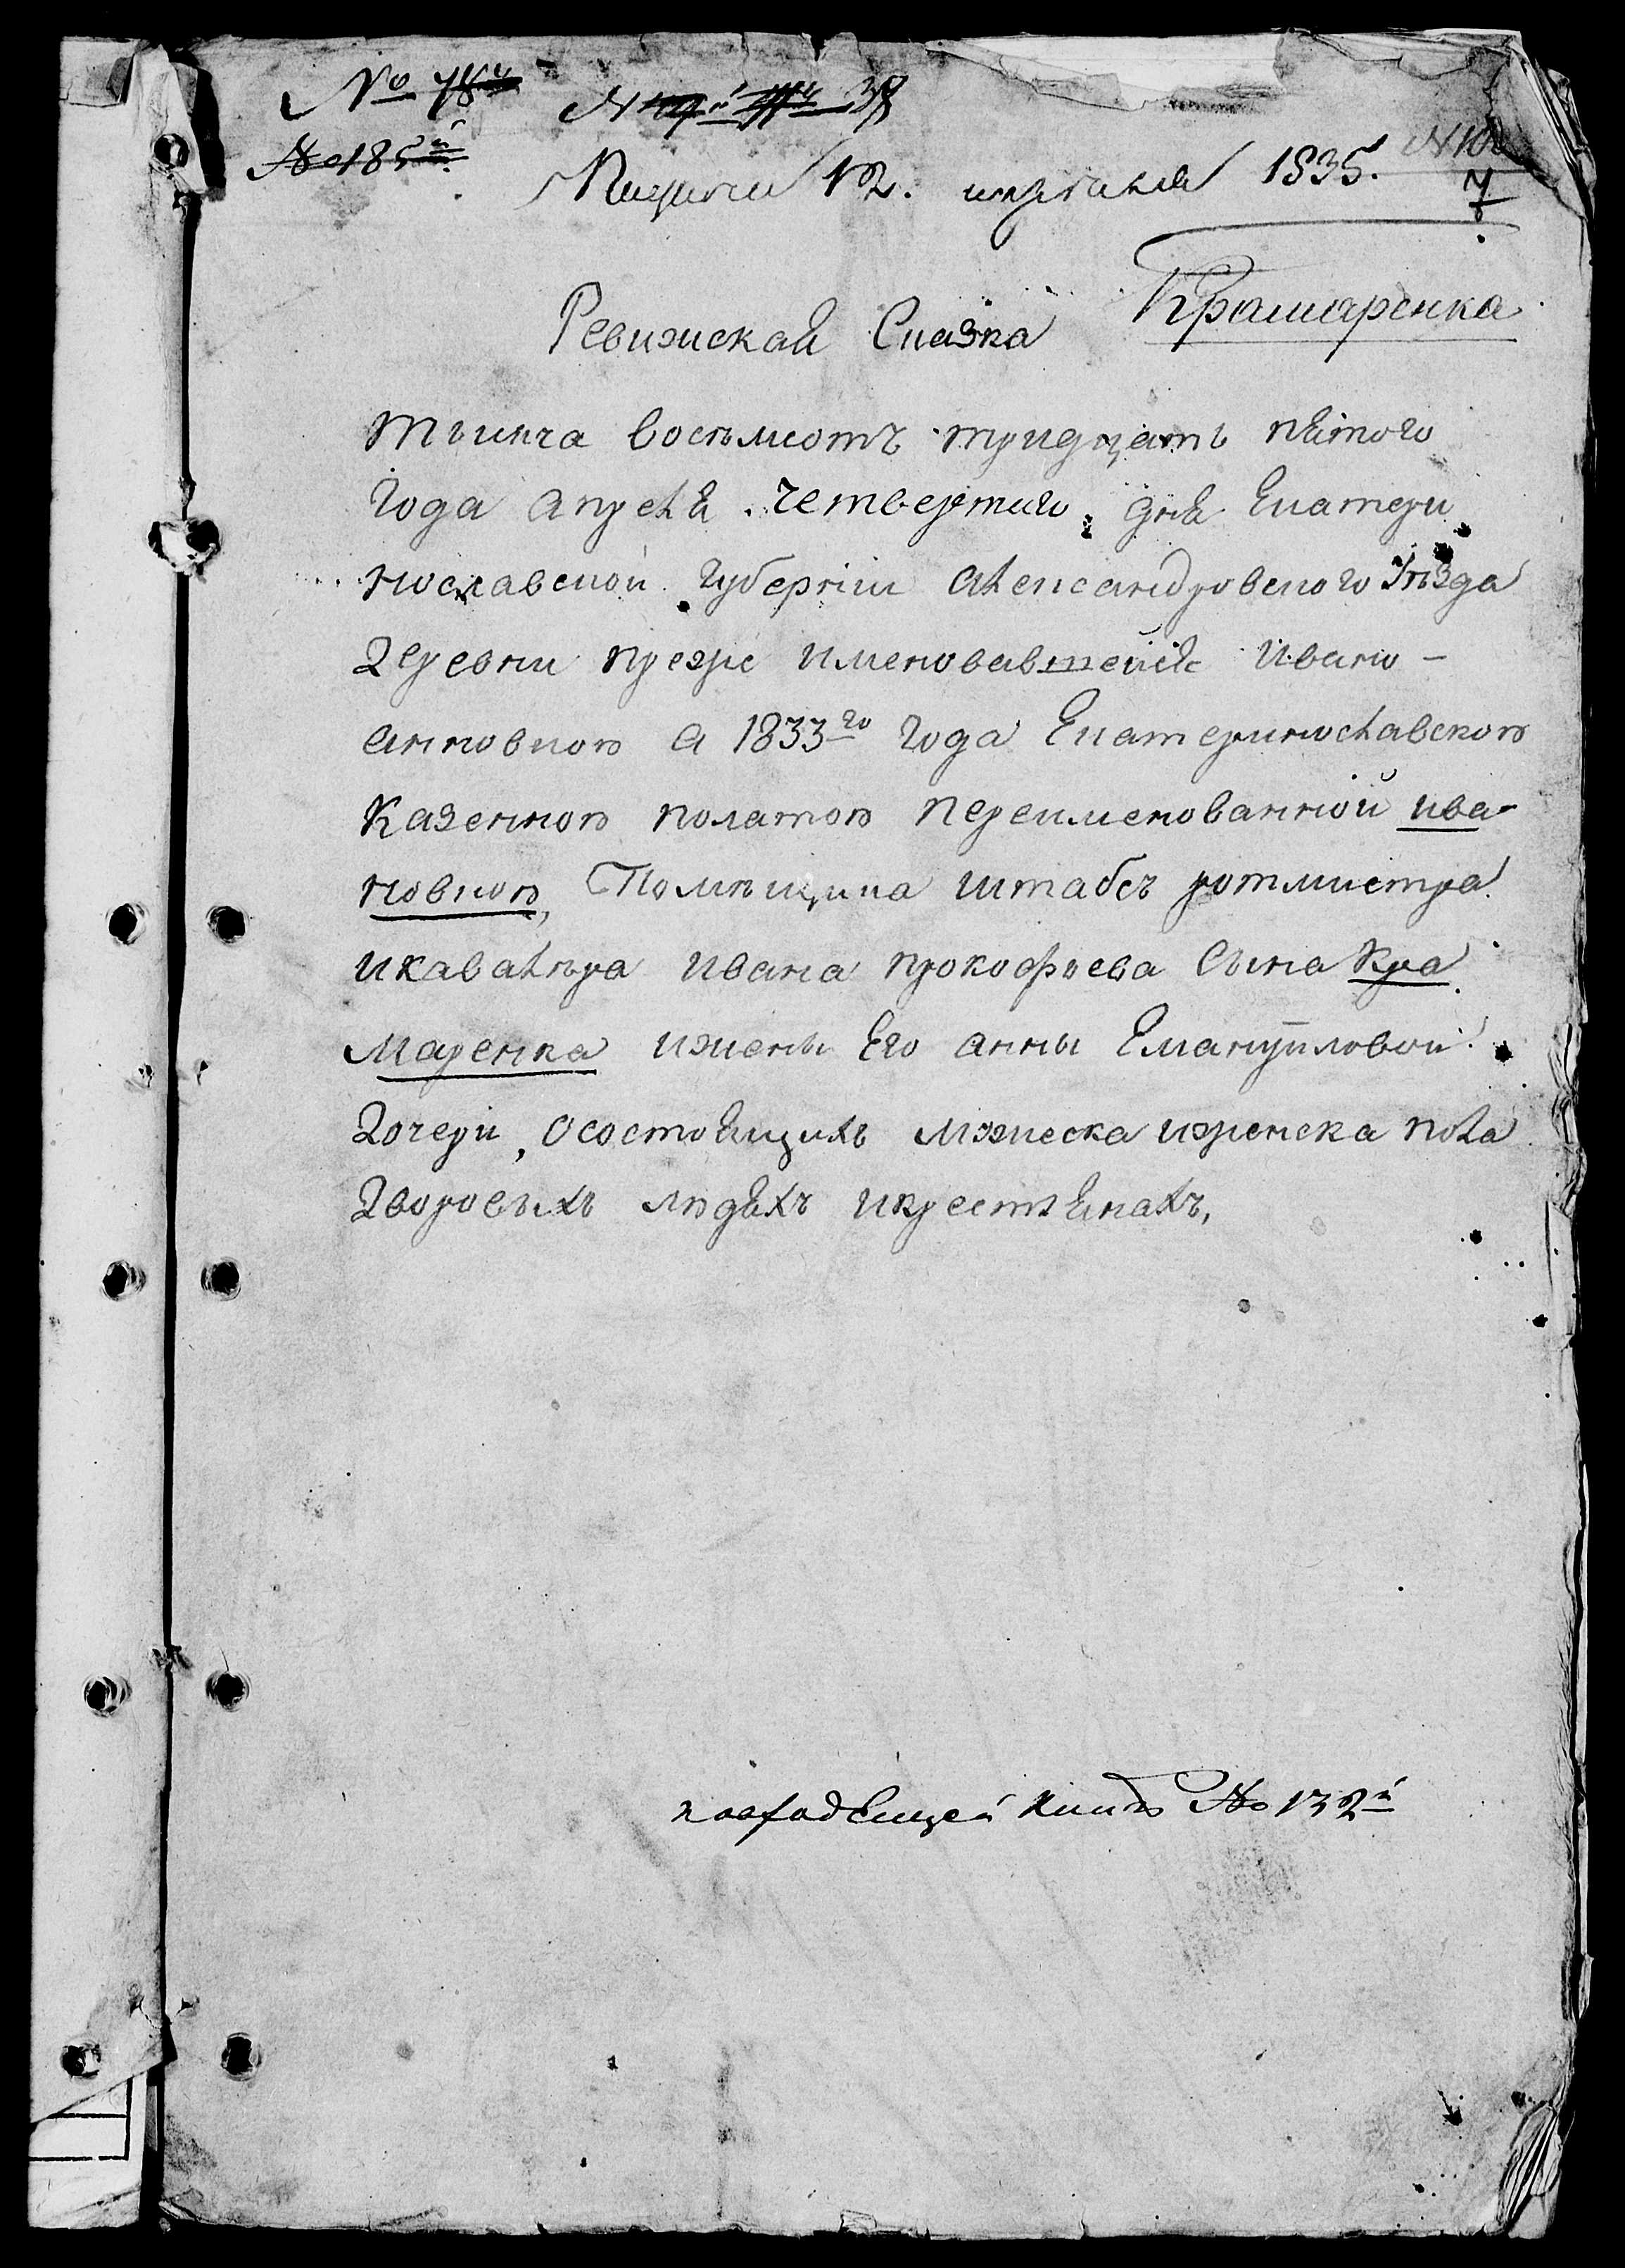 № 78
№ 185й
Получена 12. апреля 1835. № 102
7
Крамаренка
Ревижская Сказка
тысяча восемьсотъ тридцать пятого
года апреля четвертаго дня Екатери
нославской губернiи александровского Уѣзда
Деревни прежде именовавшейся Ивано-
анновкою а 1833го года Екатеринославскою
Казенною полатою переименованной ива-
новкою, Помѣщика штабсъ ротмистра
икавалѣра ивана прокофьева Сына Кра
маренка ижены Его анны Емануиловой
Дочери, осостоящихъ мужеска иженска пола
Дворовыхъ людяхъ икрестьянахъ,
повходящей книгѣ № 132й